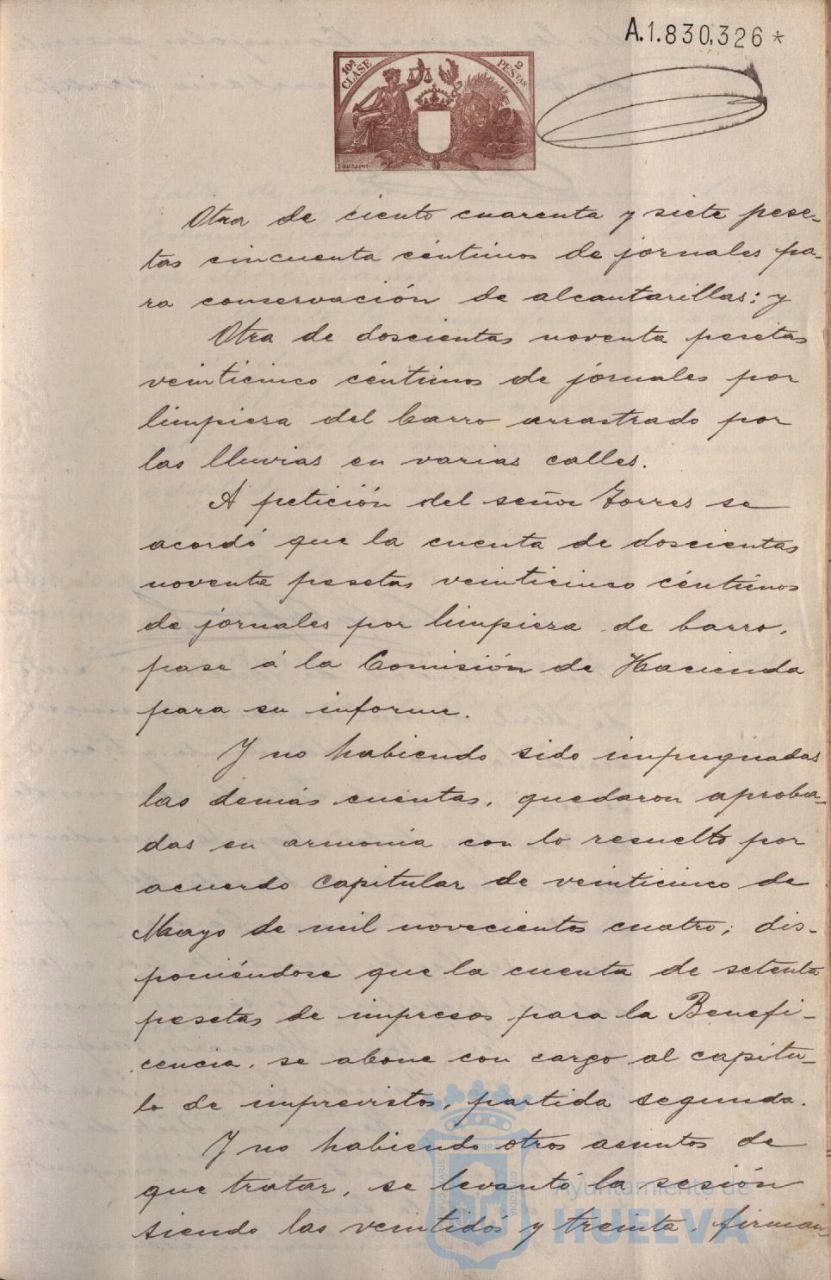 A.1.830,326*
10ª CLASE
2 PESTAS
Otra de ciento cuarenta y siete pese-
tas cincuenta céntimos de jornales pa-
ra conservación de alcantarillas; y
Otra de doscientas noventa pesetas
veinticinco céntimos de jornales por
limpieza del barro arrastrado por
las lluvias en varias calles.
A petición del señor Torres se
acordó que la cuenta de doscientas
noventa pesetas veinticinco céntimos
de jornales por limpieza de barro,
pase á la Comisión de Hacienda
para su informe.
Y no habiendo sido impugnadas
las demás cuentas, quedaron aproba-
das en armonia con lo resuelto por
acuerdo Capitular de veinticinco de
Mayo de mil novecientos cuatro; dis-
poniéndose que la cuenta de setenta
pesetas de impresos para la Benefi-
cencia, se abone con cargo al capitu-
lo de imprevistos, partida segunda.
Y no habiendo otros asuntos de
que tratar, se levantó la sesión
siendo las veintidós y treinta, firman
Ayuntamiento de
HUELVA